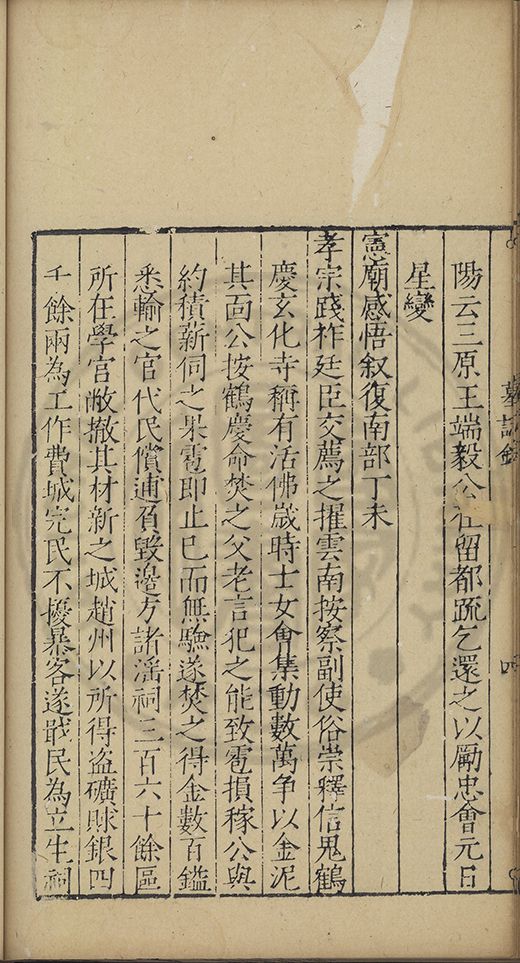 墓誌銘
四
陽云三原王端毅公在留都疏乞還之以勵忠會元日
星變
憲廟感悟叙復南部丁未
孝宗踐祚廷臣交薦之擢雲南按察副使俗崇釋信鬼鶴
慶玄化寺稱有活佛歲時士女會集動數萬爭以金泥
其面公按鶴慶命焚之父老言犯之能致雹損稼公與
約積薪伺之果雹即止已而無驗遂焚之得金數百鎰
悉輸之官代民償逋負毀邊方諸淫祠三百六十餘區
所在學官敝撤其材新之城趙州以所得盜礦賕銀四
千餘兩為工作費城完民不擾暴客遂戢民為立生祠